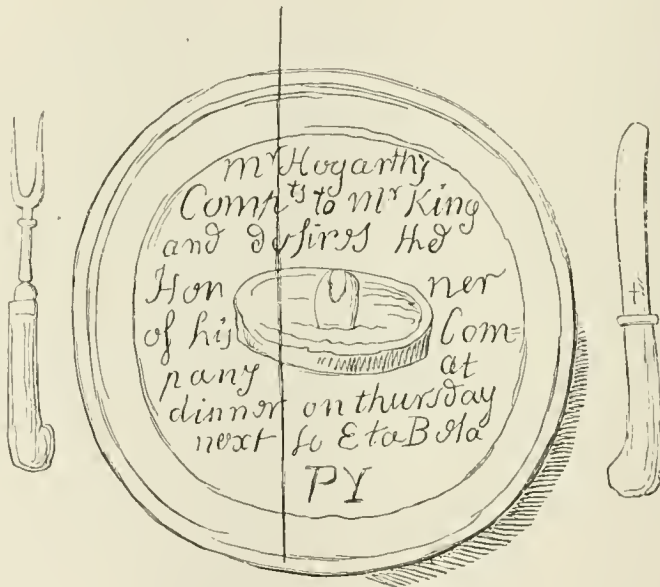 mr Hogarth's
Compts to Mr King
and desires the
Hon ner
of his Com=
pany at
dinner on thursday
next to Eta Beta
PY